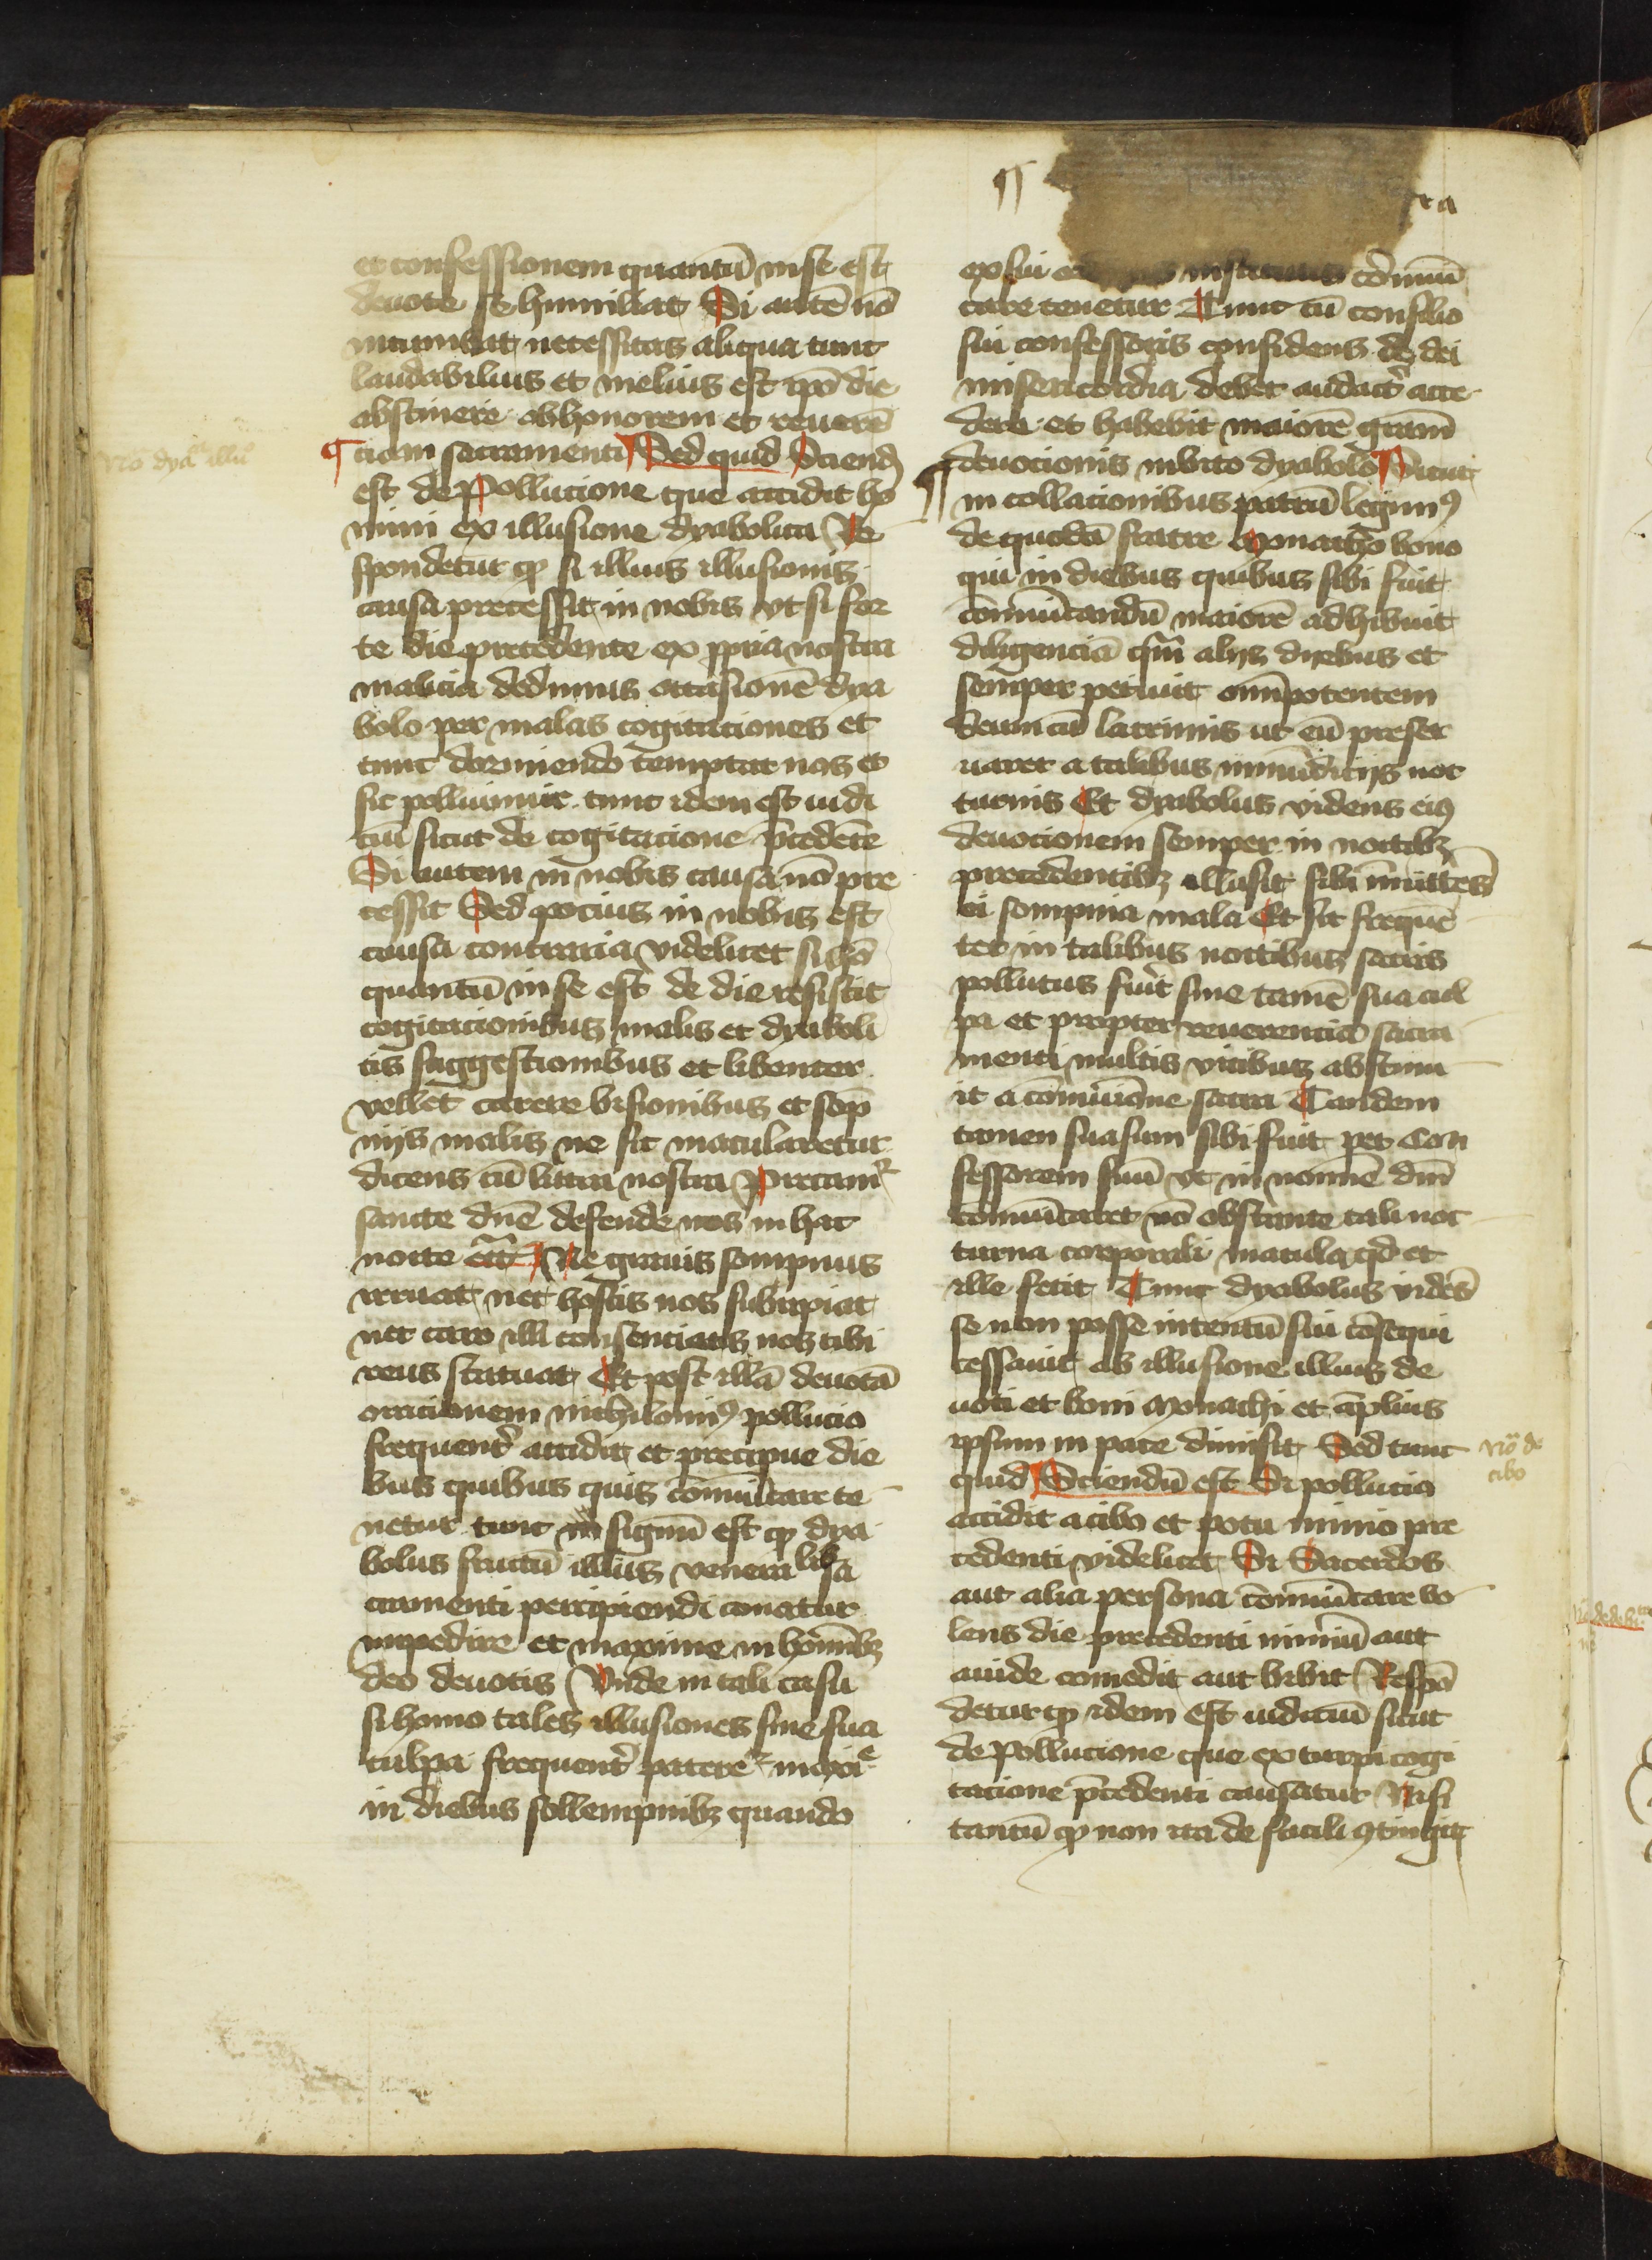 et confessionem quantū in se est
deuote se humiliat Si autē nō
incumbat necessitas aliqua tunc
laudabilius et melius est ipō die
abstinere ob honorem et reuerē
ciam sacramenti Sed quid Sciend
est de Pollucione que accidit ho
mini ex illusione dyabolica Re
spondetur ꝙ si illius illusionis
causa precessit in nobis vt si for
te die precedente ex ꝓpria nostra
malicia dedimus occasionē dya
bolo per malas cogitaciones et
tunc dormiendo temptat nos et
sic polluimur tunc idem est iudi
ciū sicut de cogitacione p̄cedēte
Si autem in nobis causa nō pre
cessit Sed pocius in nobis est
causa contraria videlicet si hō
quantū in se est de die resistit
cogitacionibus malis et dyaboli
cis suggestionibus et libenter
vellet carere visionibus et sōp
nijs malis ne sic macularetur
dicens cū littera nostra Precamᷣ
sancte dn̄e defende nos in hac
nocte etc̄ Ne grauis sompnus
irruat nec hostis nos subripiat
nec caro illi consenciens nos tibi
reus statuat Et post illā deuotā
oracionem nichilominꝰ pollucio
frequent̄ accidit et precipue die
bus quibus quis cōmūicare te
netur tunc signū est ꝙ dya
bolus fructū illius venerabilis sa
cramenti percipiendi conatur
impedire et maxime in hōībꝫ
deo deuotis Vnde in tali casu
si homo tales illusiones sine sua
culpa frequent̄ pateretᷣ maxīe
in diebus sollempnibꝫ quando
Nō dyal illū
¶
ra
ex sui institutis cōmūi
care tenetur Tunc cū consilio
sui confessoris confidens de dei
misericordia debet audact̄ acce
dere et habebit maiorē grām
deuocionis inuito dyabolo Sicut
in collacionibus patrū legimꝰ
de quodā fratre Monacho bono
qui in diebus quibus sibi fuit
cōmūicandū maiorē adhibuit
diligenciā qm̄ alijs diebus et
semper petiuit omīpotentem
deum cū lacrimis ut eū preser
uaret a talibus inmūdicijs noc
turnis Et dyabolus videns eiꝰ
deuocionem semper in noctibꝫ
precedentibꝫ illusit sibi īmittēs
ei sompnia mala Et sic frequē
ter in talibus noctibus sacris
pollutus fuit sine tamē sua cul
pa et propter reuerenciā sacra
menti multis vicibus abstinu
it a cōmūione sacra Tandem
tamen suasum sibi fuit per Con
fessorem suū vt in nomīe dn̄i
cōmūicaret nō obstante tali noc
turna corporali macula qd et
ille fecit Tunc dyabolus vidēs
se non posse intentū sui cōsequi
cessauit ab illusione illius de
uoti et boni Monachi et āplius
ipsum in pace dimisit Sed tunc
quid Sciendū est Si pollucio
accidit a cibo et potu nimio pre
cedenti videlicet Si Sacerdos
aut alia persona cōmūicare vo
lens die precedenti nimiū aut
auide comedit aut bibit Respō
detur ꝙ idem est iudiciū sicut
de pollucione que ex turpi cogi
tacione p̄cedenti causatur Nisi
tantū ꝙ non ita de facili ꝯtingit
Nō de
cibo